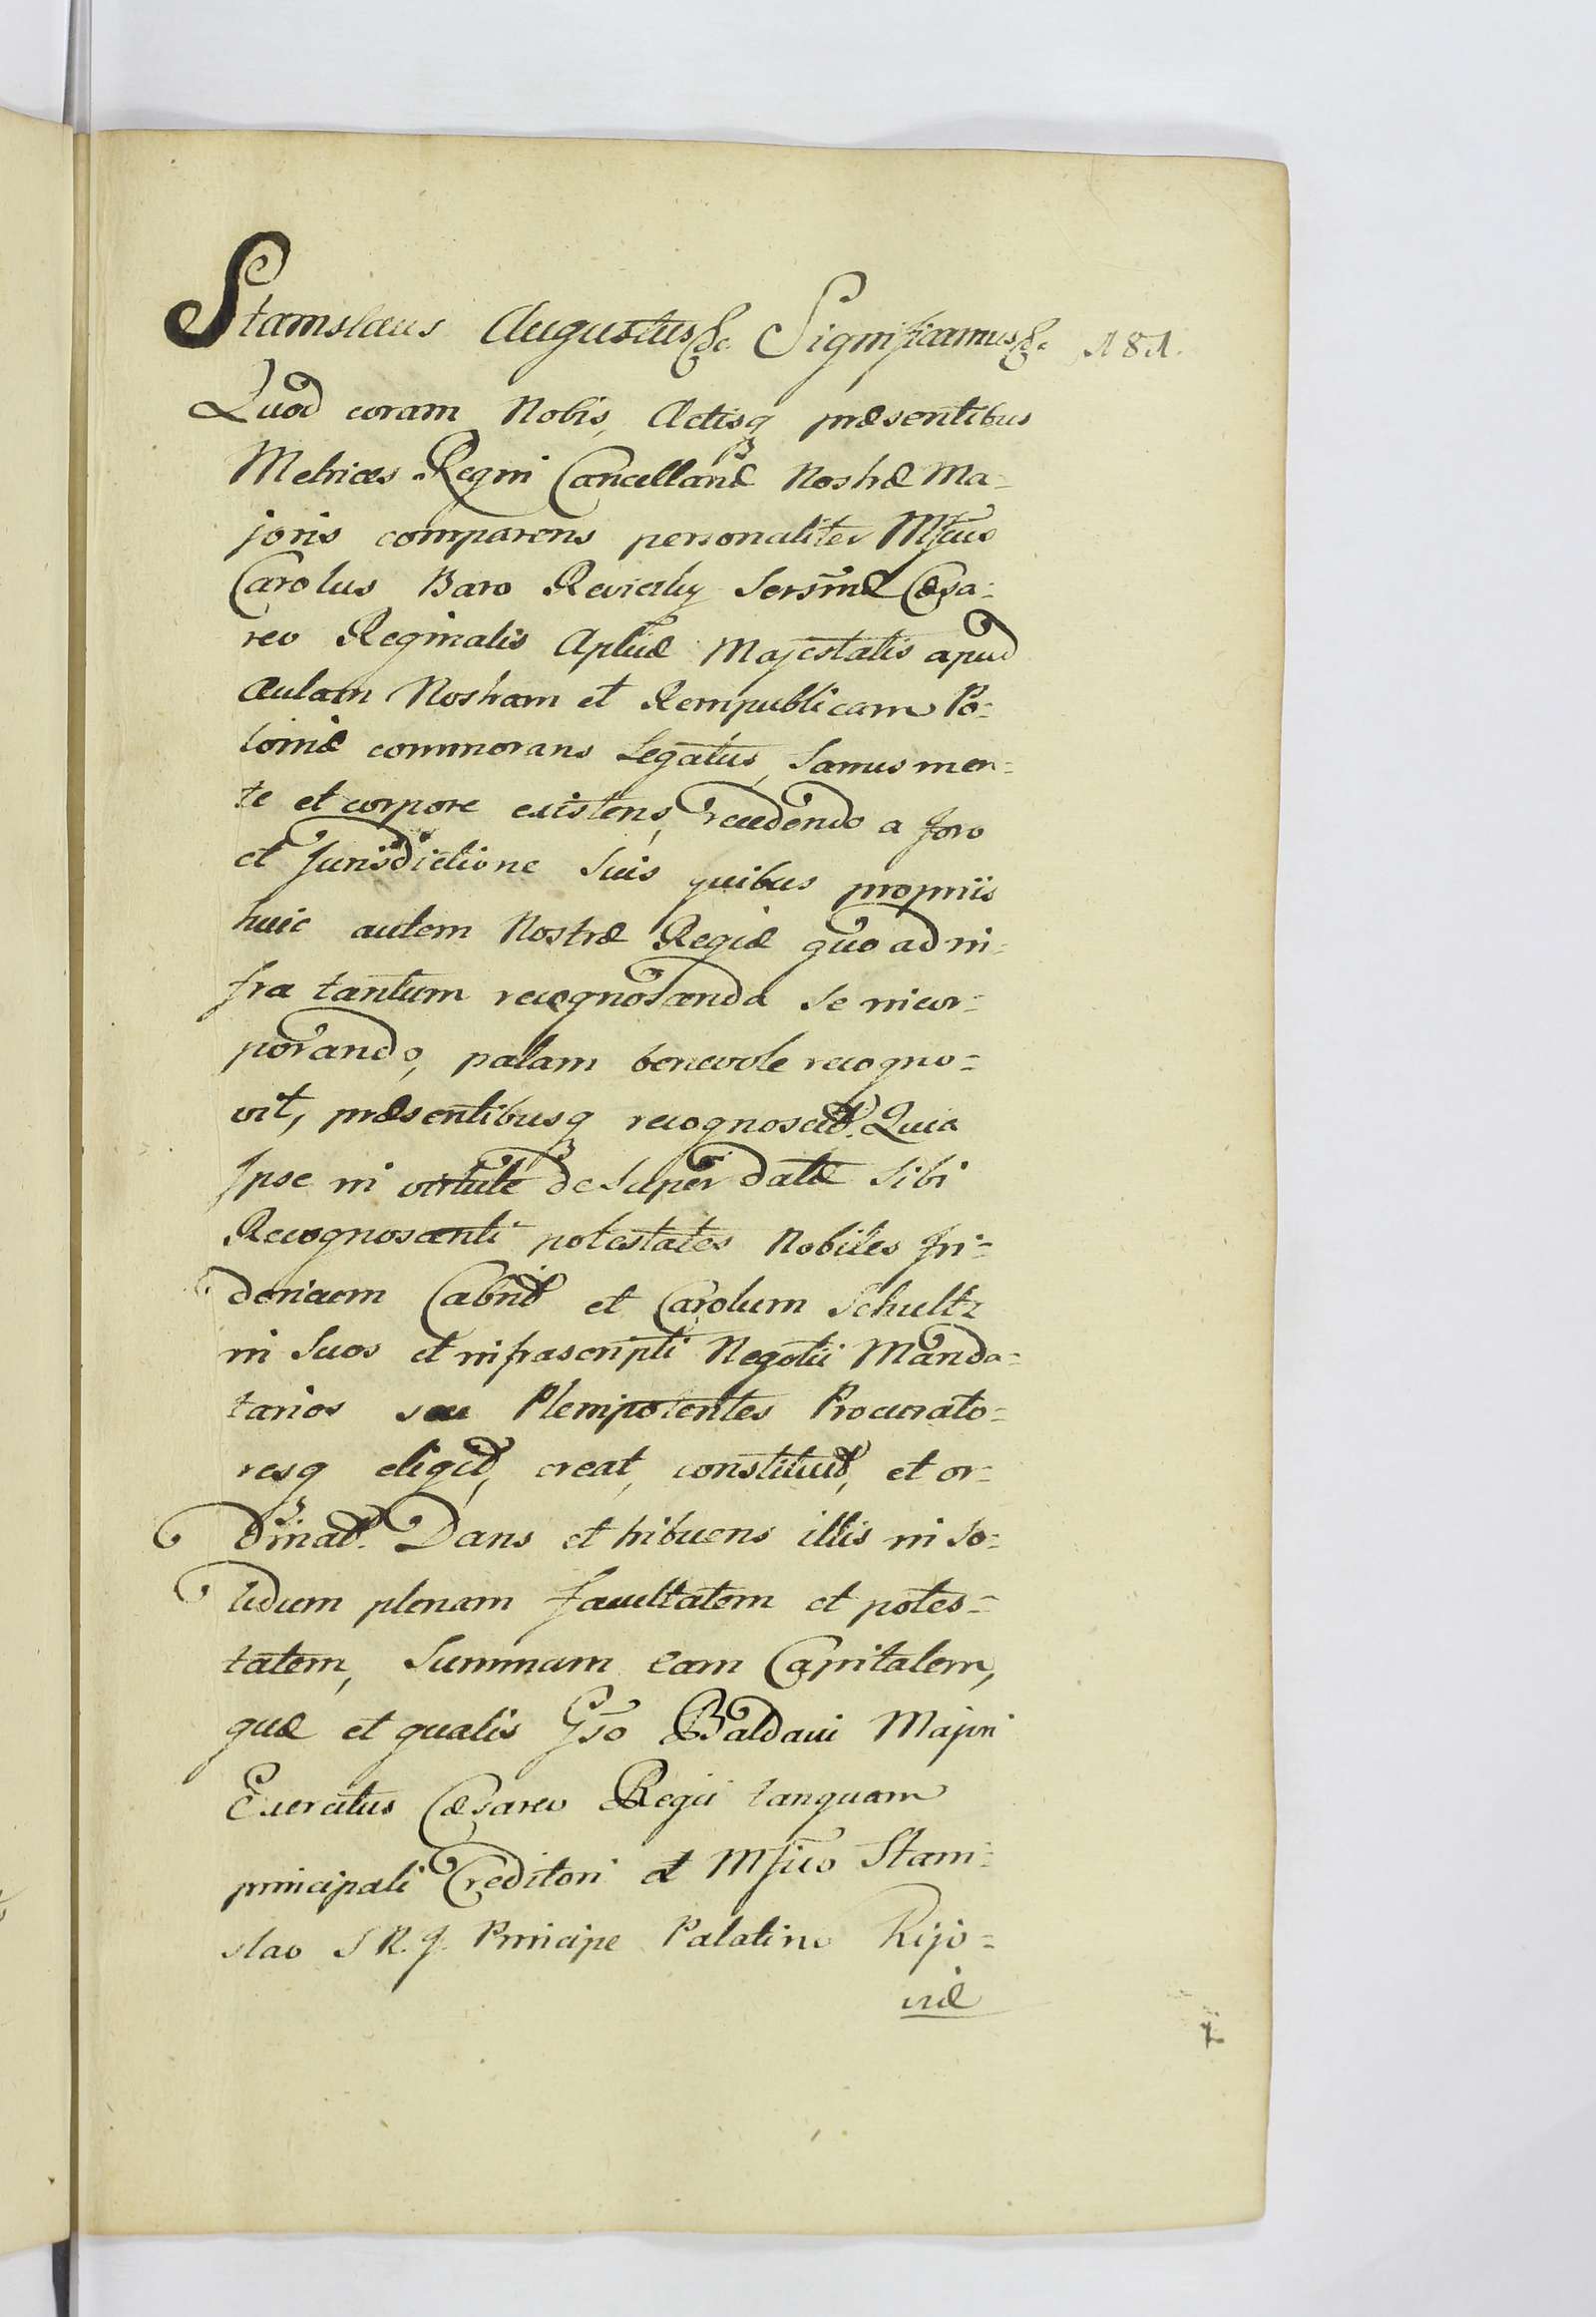 Stanislaus Augustus &c. Significamus &c. 181.
Quod coram Nobis, Actisq præsentibus
Metrices Regni Cancellariæ Nostræ Ma=
joris comparens personaliter Mfcus
Carolus Baro Reviczky Sersmæ Cæsa=
reo Reginalis Aplicæ Majestatis apud
Aulam Nostram et Rempublicam Po=
loniæ commorans Legatus, Sanus men=
te et corpore existens, recedendo a foro
et Jurisdictione Suis quibus propriis
huic autem Nostræ Regiæ quo ad in=
fra tantum recognoscenda Se incor=
porando, palam benevole recogno=
vit, præsentibusq recognoscit. Quia
Ipse in virtute de super datæ Sibi
Recognoscenti potestates Nobiles Fri=
dericum Cabrit et Carolum Schultz
in Suos et infrascripti Negotii Manda=
tarios seu Plenipotentes Procurato=
resq eligit, creat, constituit, et or=
dinat. Dans et tribuens illis in So=
lidum plenam facultatem et potes=
tatem, Summam eam Capitalem,
quæ et qualis Gso Baldavii Majori
Exercitus Cæsareo Regii tanquam
principali Creditori et Mfico Stani=
slao S.R.J. Principe Palatino Kijo=
viæ